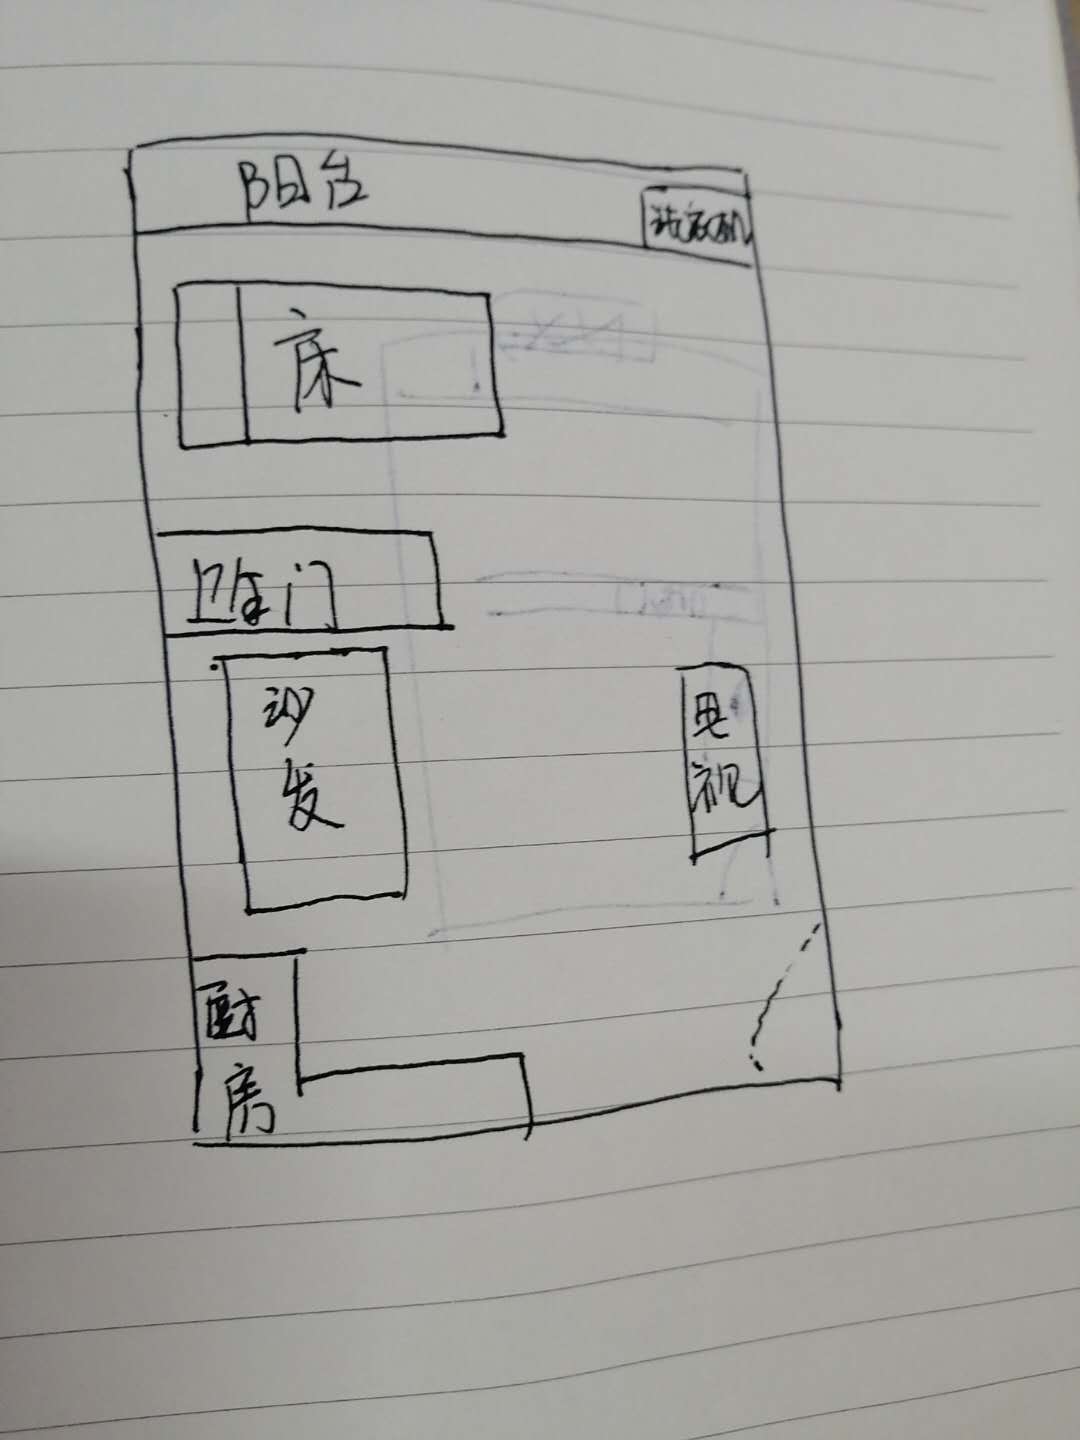 阳台
洗衣机
床
卫生门
沙
发
电
视
厨
房